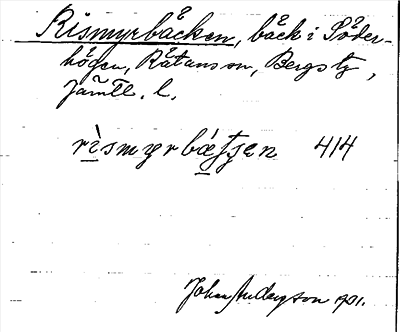 Rismyrbäcken, bäck i Söder-
högen, Rätanss on, Bergs tg,
Jämtl. l.
rìsmyrbǽtʃen 414
Johan Anderson 1901.